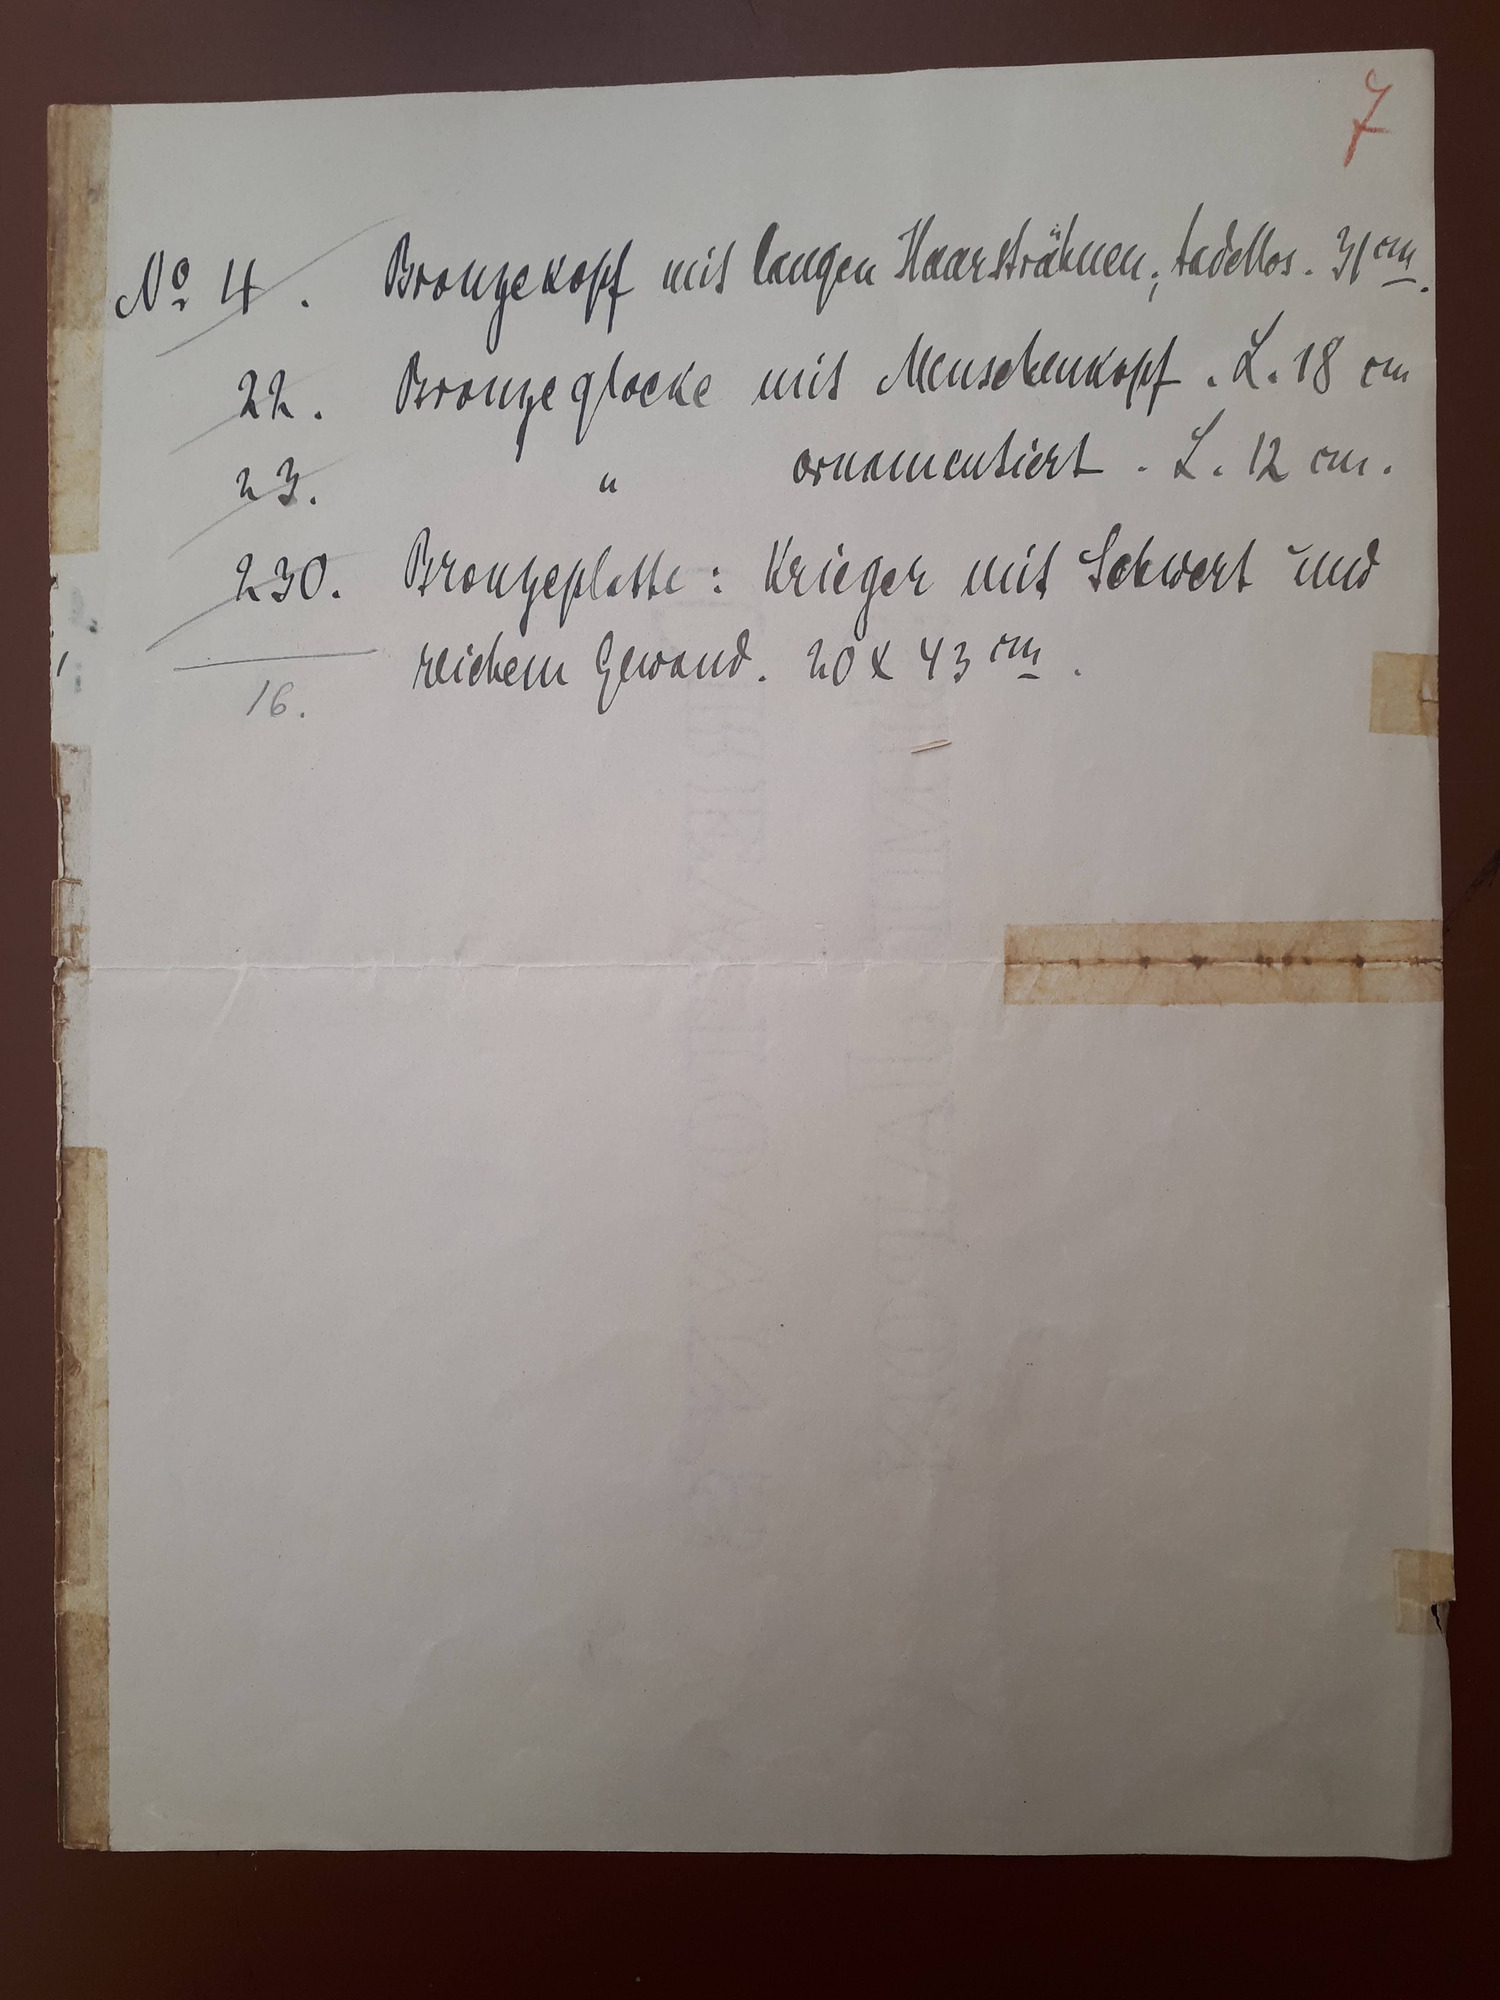 7
No 4. Bronzekopf mit langen Haarsträhnen, tadellos. 31 cm.
22. Bronzeglocke mit Menschenkopf. L. 18 cm
23. " ornamentiert. L. 12 cm.
230. Bronzeplatte: Krieger mit Schwert und
reichem Gewand. 20 x 43 cm.
16.